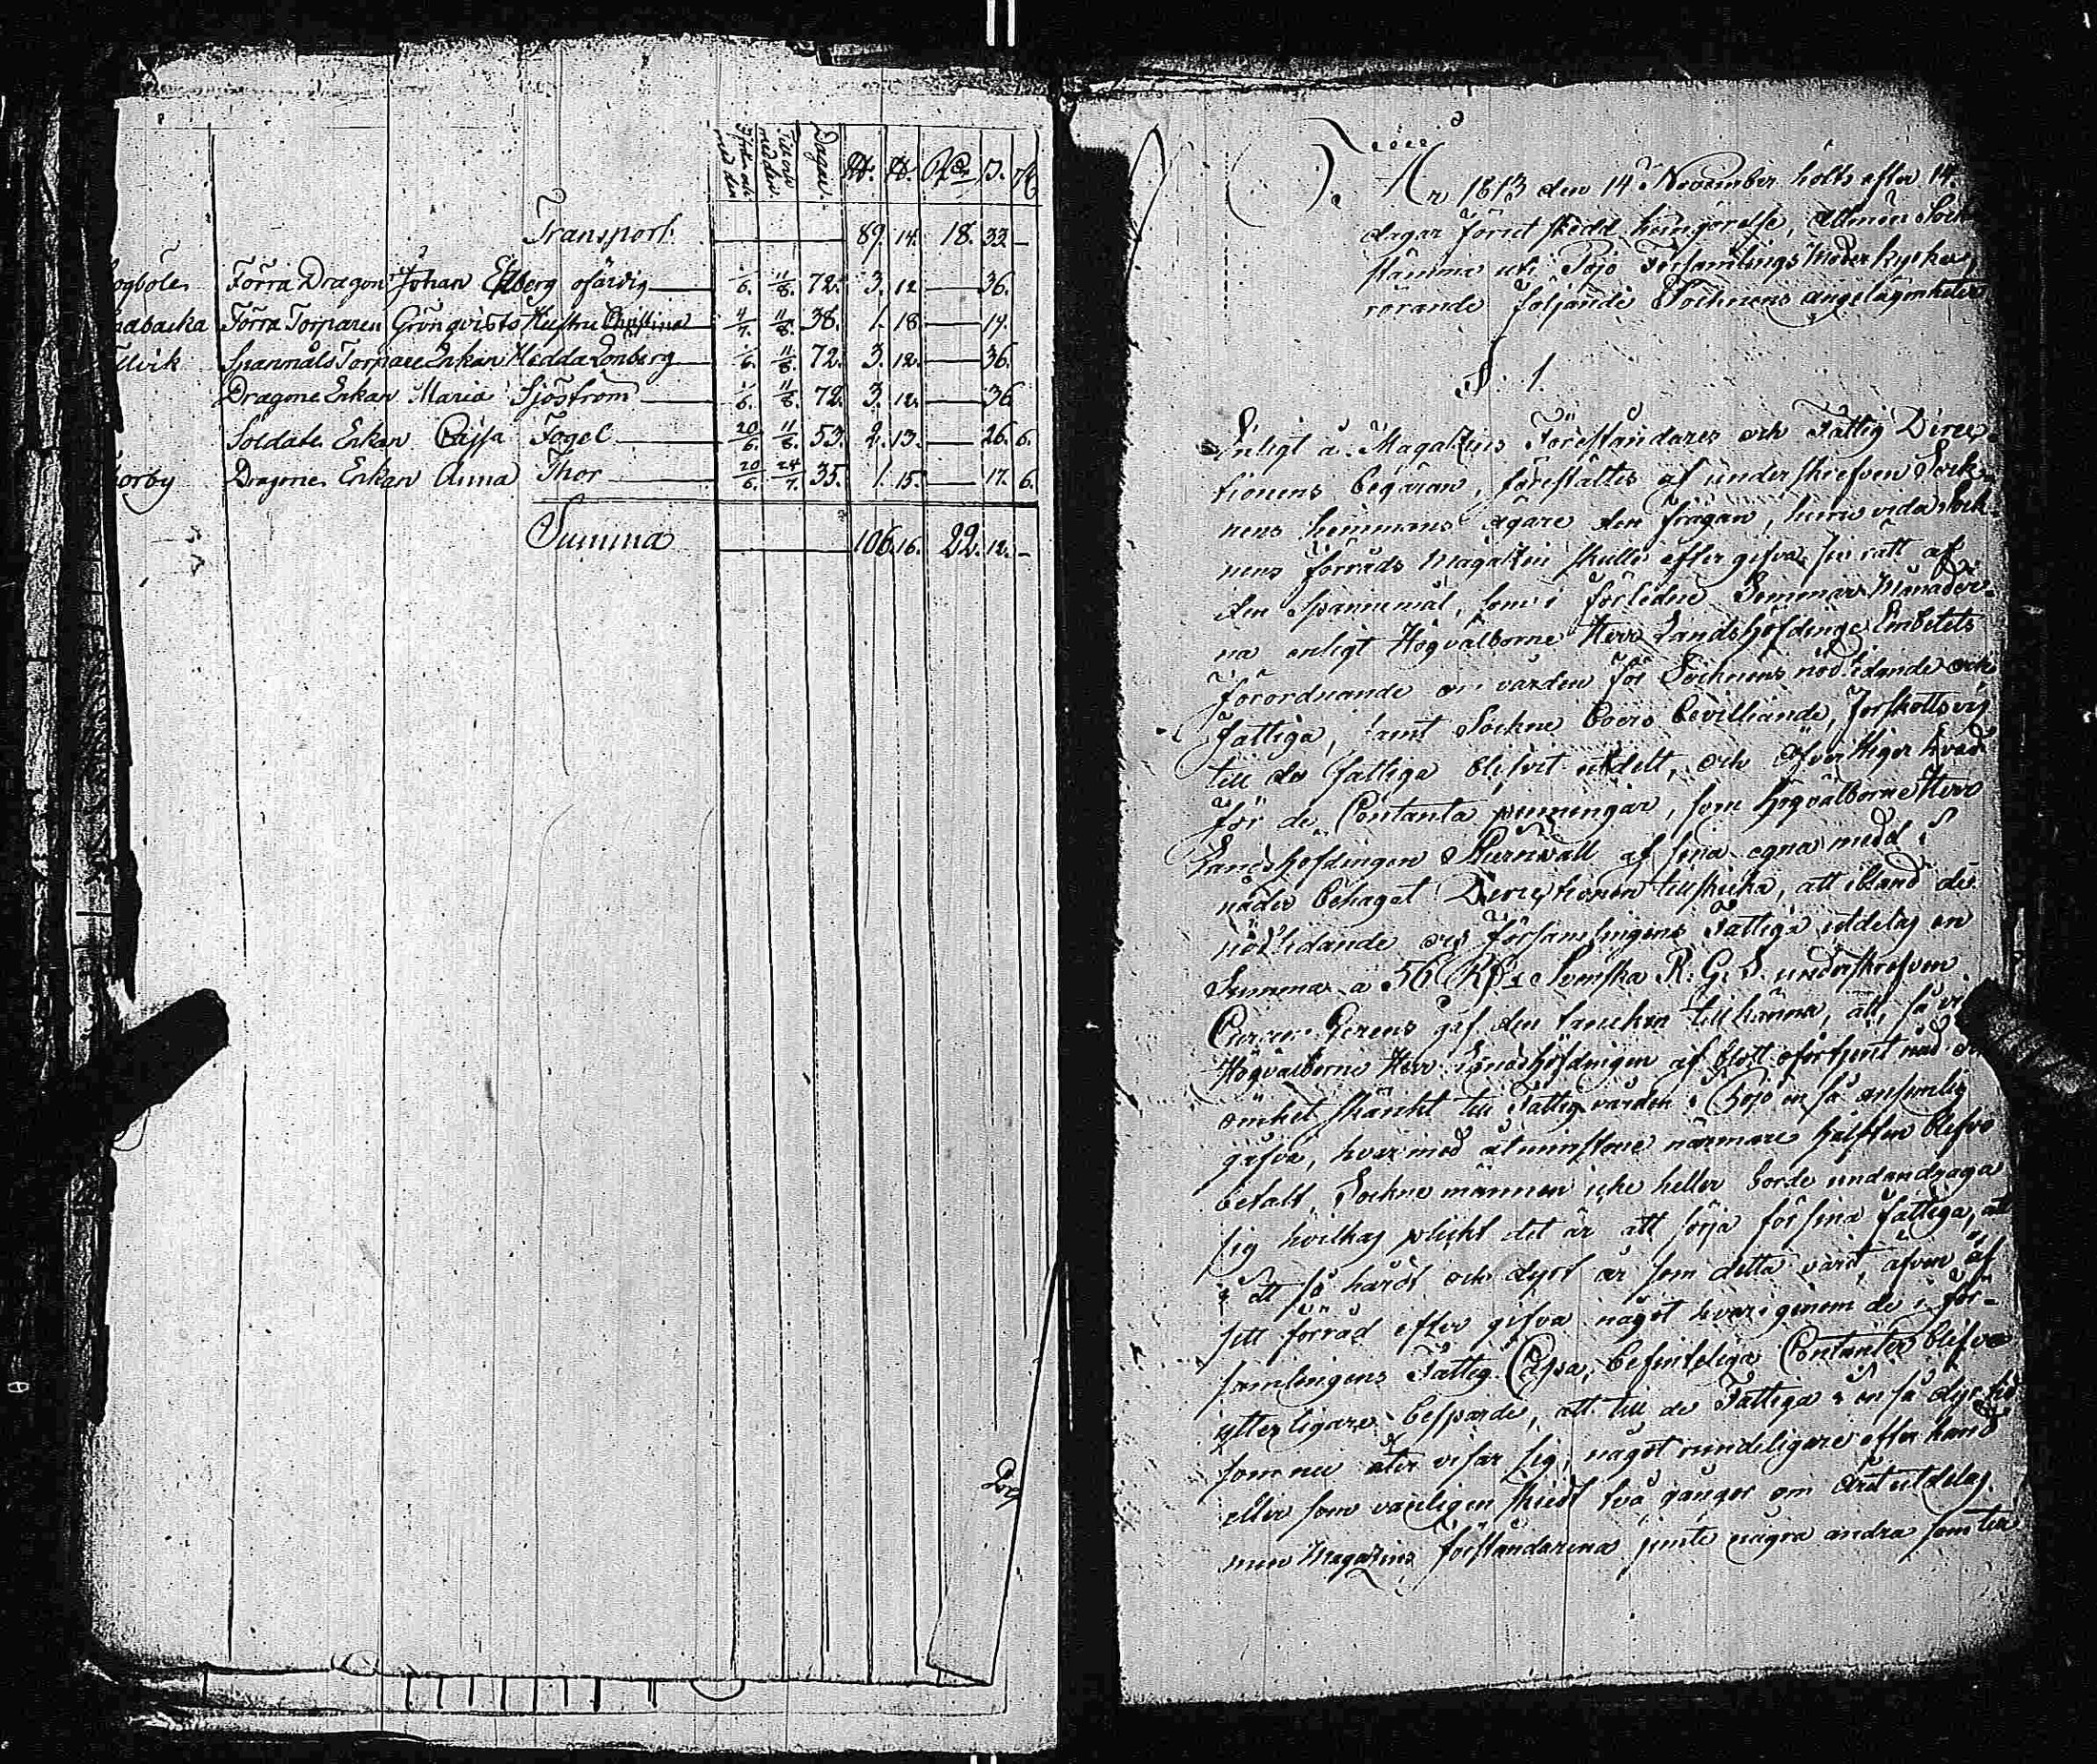 Ifrån och med den Till och med den Dagar. ℔. ℔. R:dr s. r
Transport 89. 14. 18. 33. —
ogböle Förra Dragon Johan Ekberg ofärdig 1/6. 11/8. 72. 3. 12. — 36.
dbacka Förra Torparen Grönqvists Hustru Christina 4/7. 11/8. 38. 1. 18. — 19.
llvik Spanmåls Torpare Enkan Hedda Lönberg 1/6. 11/8. 72. 3. 12. — 36.
Dragone Enkan Maria Sjöström 1/6. 11/8. 72. 3. 12. — 36
Soldate Enkan Cajsa Fogel 20/6. 11/8. 53. 2. 13. — 26. 6.
orby Dragone Enkan Anna Thor 20/6. 24/7. 35. 1. 15. — 17. 6.
Summa 106. 16. 22. 12. —
År 1813 den 14 November hölts efter 14.
dagar förut skedd kungörelse, allmän Sock
stämma uti Pojo Församlings Moder kyrka,
rörande följande Socknens angelägenheter
§. 1.
Enligt a. Magazins Föreståndares och Fattig Direc-
tionens begäran, föreställtes af underskrefven Sock-
nens hemmans ägare den frågan, huru vida Sock-
nens förråds Magazin skulle efter gifva sin rätt af
den Spannemål, som i förledne Sommar Månader-
na enligt Högvälborne Herr Landshöfdinge Embetets
förordnande om vården för Socknens nödlidande och
fattiga, samt Sockne boers bevilliande, Förskottsvis
till de fattiga blifvit utdelt, och öfverstiger hvad
för de Contanta penningar, som Högvälborne Herr
Landshöfdingen Stiernvall af sina egna medel i
nåder behagat Directionen tillskicka, att ibland de
nödlidande och församlingens Fattiga utdelas en
Summa a 56 Rd Svenska R. G. S. underskrefven
gaf den tanckan tillkänna, att så vi
Högvälborne Herr Landshöfdingen af blott oförtjent nåd och
ömhet skänkt till Fattigvården i Pojo en så ansenlig
gåfva, hvarmed åtminstone närmare hälften blefve
betalt, Sockne männen icke heller borde undandraga
sig hvilkas plickt det är att sörja för sina fattiga, at
i ett så hårdt och dyrt år som detta varit, äfven af
sitt förråd efter gifva något hvarigenom de i för-
samlingens Fattig Cassa, befinteliga Contanter blifva
ytterligare besparde, att till de Fattiga i en så dyr tid
som nu åter visar sig, något rundeligare efter hand
eller som vanligen skiedt två gånger om året utdelas.
men Magazins föreståndarena jemte några andra som